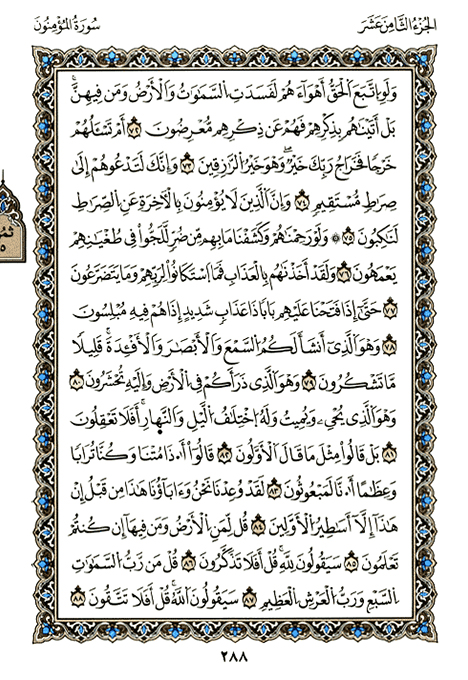 الجزء الثامن عشر
سورة المؤمنون
وَلَوِ اِتَّبَعَ اَلْحَقُّ أَهْوَآءَهُمْ لَفَسَدَتِ اِلسَّمَٰوَٰتُ وَالْأَرْضُ وَمَن فِيهِنَّ
بَلْ أَتَيْنَٰهُم بِذِكْرِهِمْ فَهُمْ عَن ذِكْرِهِم مُّعْرِضُونَ ٧٢ أَمْ تَسْـَٔلُهُمْ
خَرْجاً فَخَرَاجُ رَبِّكَ خَيْرٌ وَهْوَ خَيْرُ اُلرَّٰزِقِينَ ٧٣ وَإِنَّكَ لَتَدْعُوهُمْ إِلَىٰ
صِرَٰطٍ مُّسْتَقِيمٍ ٧٤ وَإِنَّ اَلَّذِينَ لَا يُؤْمِنُونَ بِالْأَخِرَةِ عَنِ اِلصِّرَٰطِ
لَنَٰكِبُونَ ٧٥ ۞ وَلَوْ رَحِمْنَٰهُمْ وَكَشَفْنَا مَا بِهِم مِّن ضُرٍّ لَّلَجُّواْ فِي طُغْيَٰنِهِمْ
يَعْمَهُونَ ٧٦ وَلَقَدْ أَخَذْنَٰهُم بِالْعَذَابِ فَمَا اَسْتَكَانُواْ لِرَبِّهِمْ وَمَا يَتَضَرَّعُونَ
٧٧ حَتَّىٰ إِذَا فَتَحْنَا عَلَيْهِم بَاباً ذَا عَذَابٍ شَدِيدٍ إِذَا هُمْ فِيهِ مُبْلِسُونَ
٧٨ وَهْوَ اَلَّذِي أَنشَأَ لَكُمُ اُلسَّمْعَ وَالْأَبْصَٰرَ وَالْأَفْـِٕدَةَ قَلِيلاً
مَّا تَشْكُرُونَ ٧٩ وَهْوَ اَلَّذِي ذَرَأَكُمْ فِي اِلْأَرْضِ وَإِلَيْهِ تُحْشَرُونَ ٨٠
وَهْوَ اَلَّذِي يُحْيِۦ وَيُمِيتُ وَلَهُ اُخْتِلَٰفُ اُلَّيْلِ وَالنَّهارِ أَفَلَا تَعْقِلُونَ
٨١ بَلْ قَالُواْ مِثْلَ مَا قَالَ اَلْأَوَّلُونَ ٨٢ قَالُواْ أَ.ذَا مِتْنَا وَكُنَّا تُرَاباً
وَعِظَٰماً أَ.نَّا لَمَبْعُوثُونَ ٨٣ لَقَدْ وُعِدْنَا نَحْنُ وَءَابَآؤُنَا هَٰذَا مِن قَبْلُ إِنْ
هَٰذَا إِلَّا أَسَٰطِيرُ اُلْأَوَّلِينَ ٨٤ قُل لِّمَنِ اِلْأَرْضُ وَمَن فِيهَا إِن كُنتُمْ
تَعْلَمُونَ ٨٥ سَيَقُولُونَ لِلهِ قُلْ أَفَلَا تَذَّكَّرُونَ ٨٦ قُلْ مَن رَّبُّ اُلسَّمَٰوَٰتِ
اِلسَّبْعِ وَرَبُّ اُلْعَرْشِ اِلْعَظِيمِ ٨٧ سَيَقُولُونَ اَللَّهُ قُلْ أَفَلَا تَتَّقُونَ ٨٨
٢٨٨